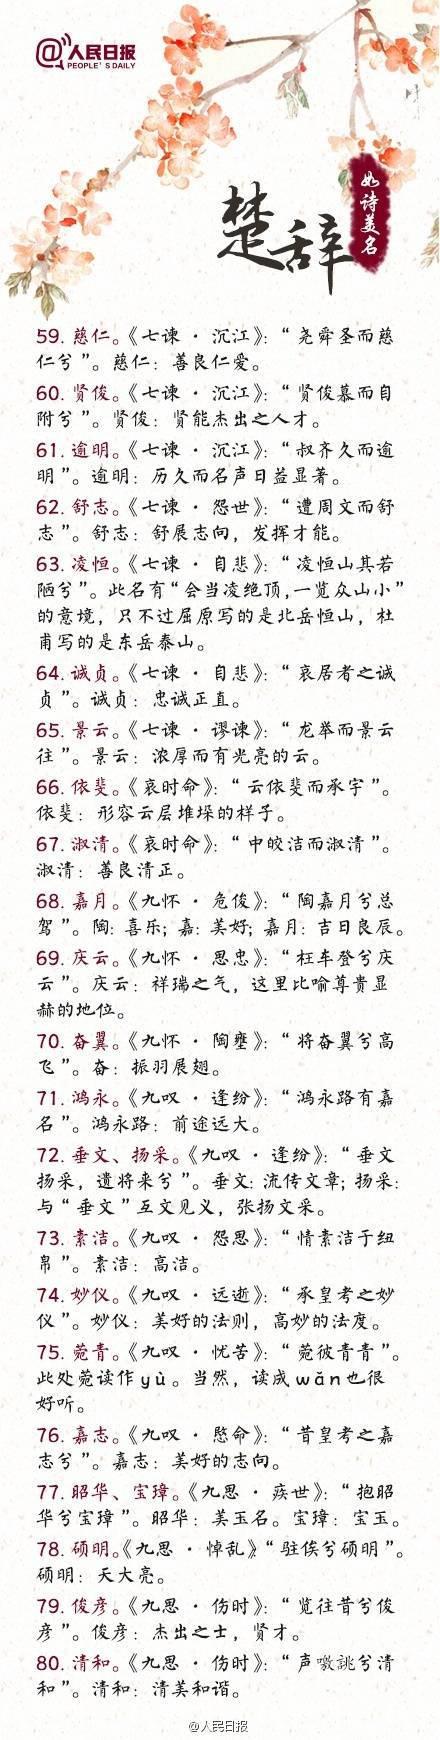 @人民日报
PEOPLE'S DAILY
楚辞
如诗美名
59. 慈仁。《七谏·沉江》：“尧舜圣而慈
仁兮”。慈仁：善良仁爱。
60. 贤俊。《七谏·沉江》：“贤俊慕而自
附兮”。贤俊：贤能杰出之人才。
61. 逾明。《七谏·沉江》：“叔齐久而逾
明”。逾明：历久而名声日益显著。
62. 舒志。《七谏·怨世》：“遭周文而舒
志”。舒志：舒展志向，发挥才能。
63. 凌恒。《七谏·自悲》：“凌恒山其若
陋兮”。此名有“会当凌绝顶，一览众山小”
的意境，只不过屈原写的是北岳恒山，杜
甫写的是东岳泰山。
64. 诚贞。《七谏·自悲》：“哀居者之诚
贞”。诚贞：忠诚正直。
65. 景云。《七谏·谬谏》：“龙举而景云
往”。景云：浓厚而有光亮的云。
66. 依斐。《哀时命》：“云依斐而承宇”。
依斐：形容云层堆垛的样子。
67. 淑清。《哀时命》：“中皎洁而淑清”。
淑清：善良清正。
68. 嘉月。《九怀·危俊》：“陶嘉月兮总
驾”。陶：喜乐；嘉：美好；嘉月：吉日良辰。
69. 庆云。《九怀·思忠》：“枉车登兮庆
云”。庆云：祥瑞之气，这里比喻尊贵显
赫的地位。
70. 奋翼。《九怀·陶壅》：“将奋翼兮高
飞”。奋：振羽展翅。
71. 鸿永。《九叹·逢纷》：“鸿永路有嘉
名”。鸿永路：前途远大。
72. 垂文、扬采。《九叹·逢纷》：“垂文
扬采，遗将来兮”。垂文：流传文章；扬采：
与“垂文”互文见义，张扬文采。
73. 素洁。《九叹·怨思》：“情素洁于纽
帛”。素洁：高洁。
74. 妙仪。《九叹·远逝》：“承皇考之妙
仪”。妙仪：美好的法则，高妙的法度。
75. 菀青。《九叹·忧苦》：“菀彼青青”。
此处菀读作yù。当然，读成wǎn也很
好听。
76. 嘉志。《九叹·愍命》：“昔皇考之嘉
志兮”。嘉志：美好的志向。
77. 昭华、宝璋。《九思·疾世》：“抱昭
华兮宝璋”。昭华：美玉名。宝璋：宝玉。
78. 硕明。《九思·悼乱》：“驻俟兮硕明”。
硕明：天大亮。
79. 俊彦。《九思·伤时》：“览往昔兮俊
彦”。俊彦：杰出之士，贤才。
80. 清和。《九思·伤时》：“声噭誂兮清
和”。清和：清美和谐。
@人民日报